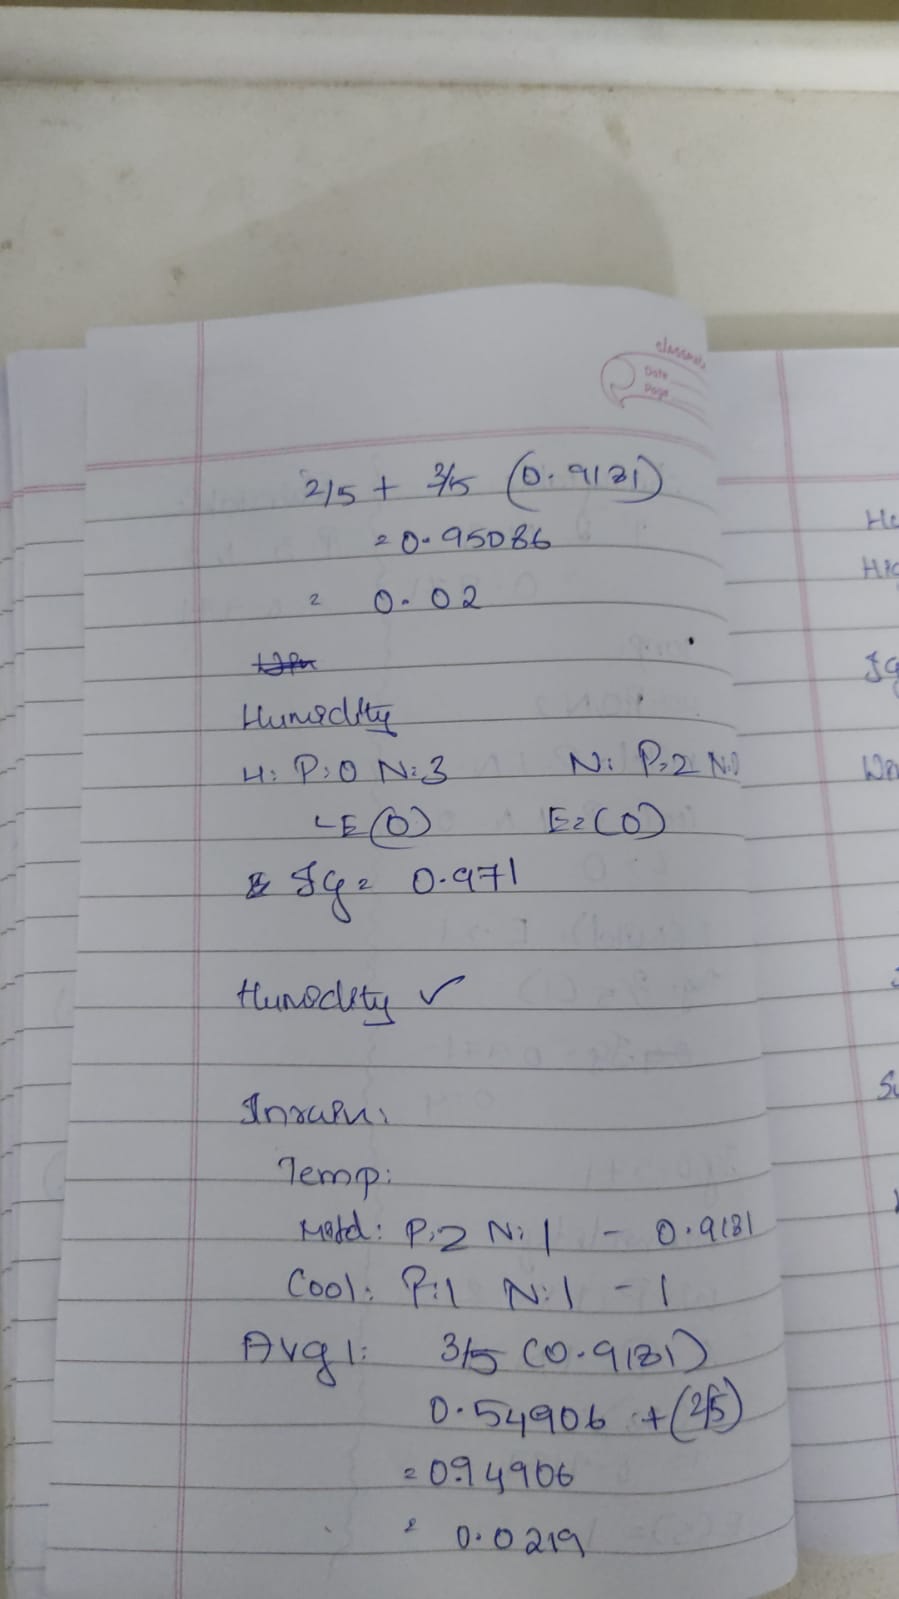 classmate
Date
Page
2/5 + 3/5 (0.9181)
= 0.95086
= 0.02
Humidity
H: P:0 N:3 N: P=2 N:0
E(0) E=(0)
IG = 0.971
Humidity ✓
Temp:
P:2 N:1 - 0.9181
Cool: P:1 N:1 - 1
Avg 1: 3/5 (0.9181)
0.54906 + (2/5)
= 0.94906
= 0.0219